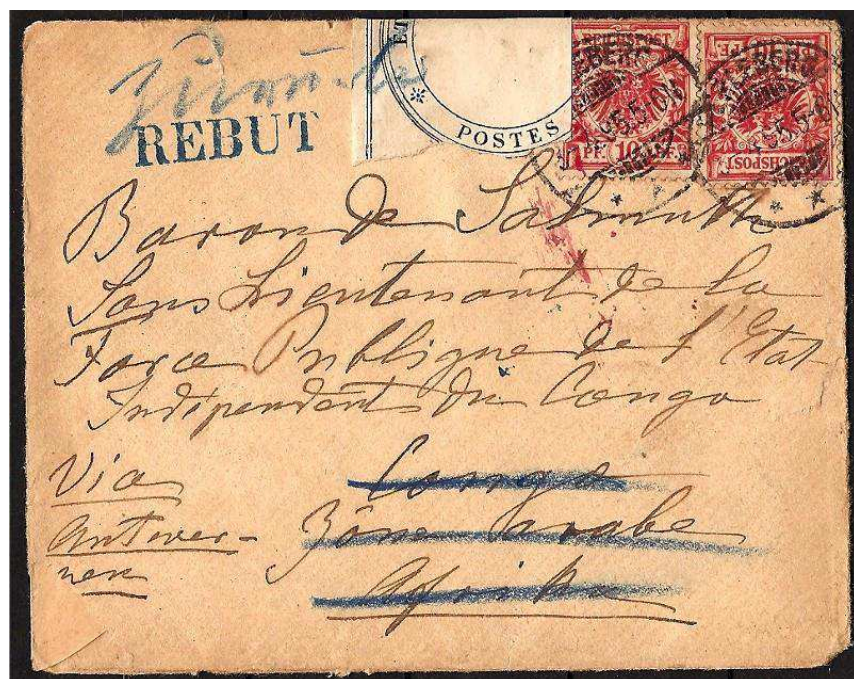 Zurück
REBUT
POSTES
REICHSPOST
10 PF.
REICHSPOST
Baron de Salmuth
Sous Lieutenant de la
Force Publique de l'Etat
Indépendant du Congo
Via
Antwer-
pen
Congo
Zône Arabe
Afrika